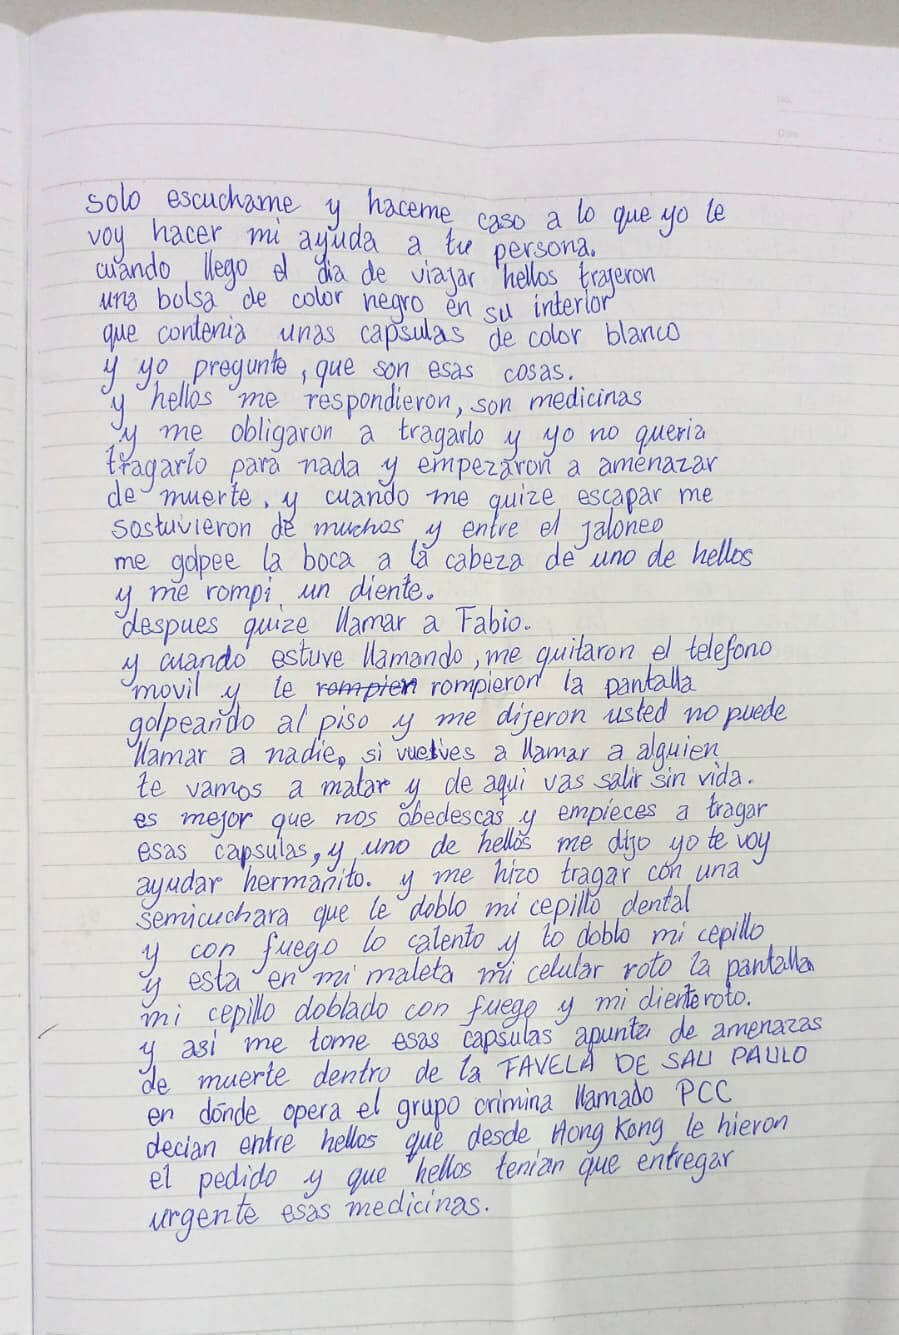 solo escuchame y haceme caso a lo que yo le
voy hacer mi ayuda a tu persona.
cuando llego el dia de viajar hellos trajeron
una bolsa de color negro en su interior
que contenia unas capsulas de color blanco
y yo pregunte, que son esas cosas.
y hellos me respondieron, son medicinas
y me obligaron a tragarlo y yo no queria
tragarlo para nada y empezaron a amenazar
de muerte. y cuando me quize escapar me
sostuvieron de muchos y entre el jaloneo
me golpee la boca a la cabeza de uno de hellos
y me rompi un diente.
despues quize llamar a Fabio.
y cuando estuve llamando, me quitaron el telefono
movil y le rompien rompieron la pantalla
golpeando al piso y me dijeron usted no puede
llamar a nadie, si vuelves a llamar a alguien
te vamos a matar y de aqui vas salir sin vida.
es mejor que nos obedescas y empieces a tragar
esas capsulas, y uno de hellos me dijo yo te voy
ayudar hermanito. y me hizo tragar con una
semicuchara que le doblo mi cepillo dental
y con fuego lo calento y lo doblo mi cepillo
y esta en mi maleta mi celular roto la pantalla
mi cepillo doblado con fuego y mi diente roto.
y asi me tome esas capsulas apunta de amenazas
de muerte dentro de la FAVELA DE SAU PAULO
en donde opera el grupo crimina llamado PCC
decian entre hellos que desde Hong Kong le hieron
el pedido y que hellos tenian que entregar
urgente esas medicinas.